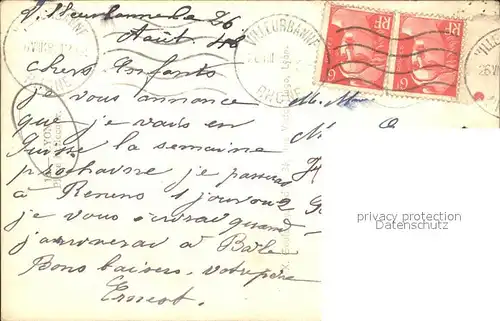 Villeurbanne le 26
Août 48
chers Enfants
je vous annonce
que je vais en
Suisse la semaine
prochaine je passerai
à Renens 1 jour ou 2
je vous écrirai quand
j'arriverai à Bâle
Bons baisers, votre père
Ernest
VILLEURBANNE
RHONE
RF
RF
M. Mme
LYON
privacy protection
Datenschutz